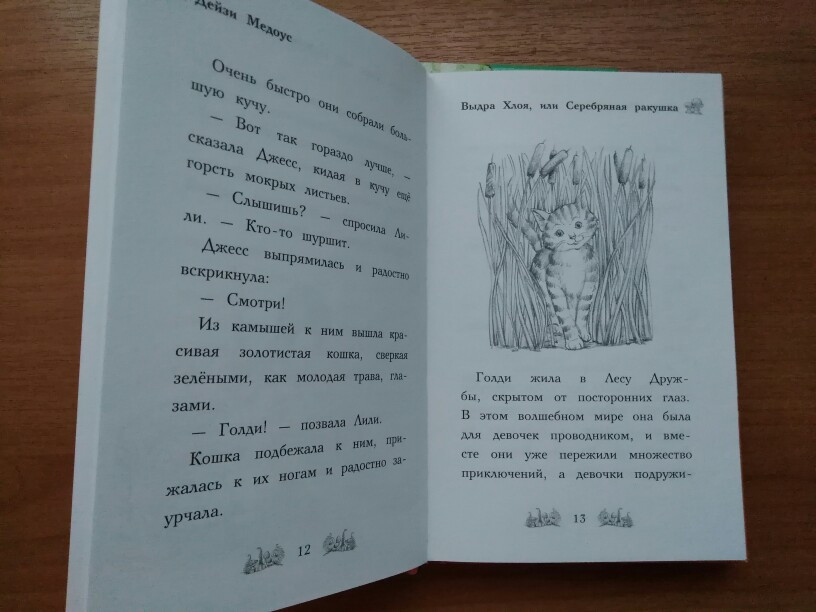 Дейзи Медоус
Очень быстро они собрали боль-
шую кучу.
— Вот так гораздо лучше, —
сказала Джесс, кидая в кучу ещё
горсть мокрых листьев.
— Слышишь? — спросила Ли-
ли. — Кто-то шуршит.
Джесс выпрямилась и радостно
вскрикнула:
— Смотри!
Из камышей к ним вышла кра-
сивая золотистая кошка, сверкая
зелёными, как молодая трава, гла-
зами.
— Голди! — позвала Лили.
Кошка подбежала к ним, при-
жалась к их ногам и радостно за-
урчала.
12
Выдра Хлоя, или Серебряная ракушка
Голди жила в Лесу Друж-
бы, скрытом от посторонних глаз.
В этом волшебном мире она была
для девочек проводником, и вме-
сте они уже пережили множество
приключений, а девочки подружи-
13